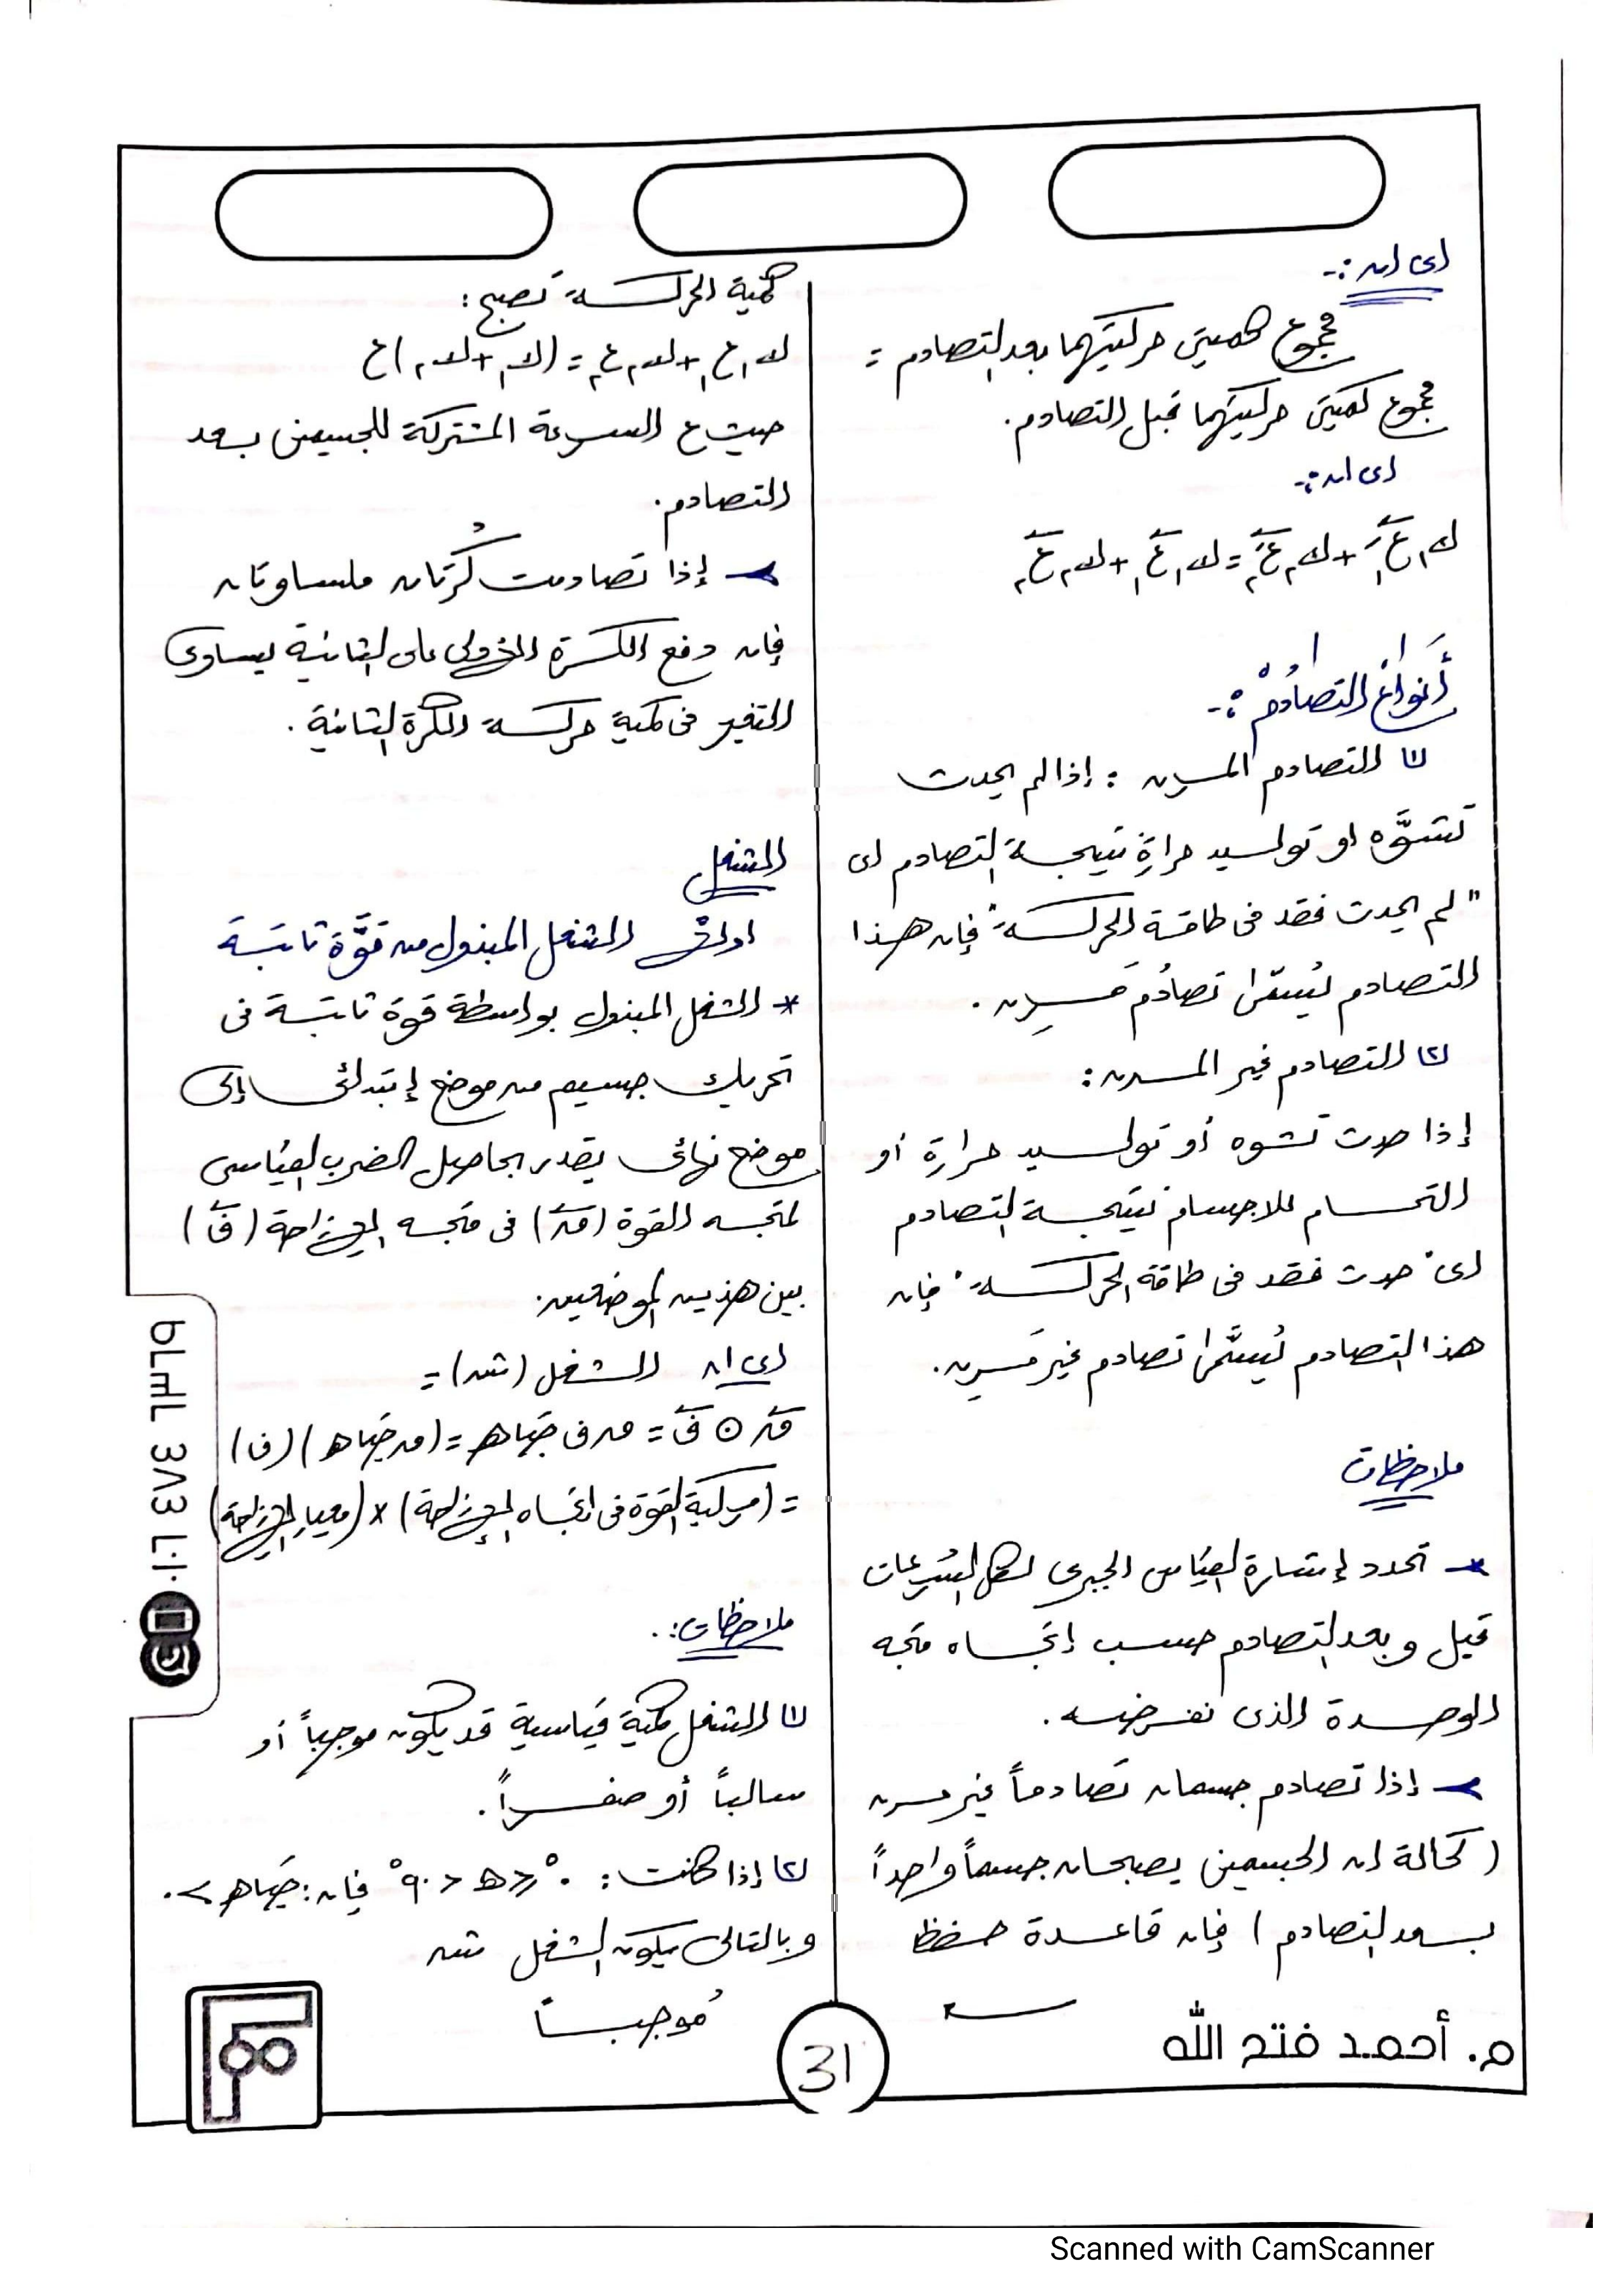 اى ان :-
مجموع كميتى حركتيهما بعد التصادم =
مجموع كميتى حركتيهما قبل التصادم.
اى ان :-
ك₁ ع₁َ + ك₂ ع₂َ = ك₁ ع₁ + ك₂ ع₂
أنواع التصادم :-
١) التصادم المرن : إذا لم يحدث
تشوَّه او توليد حرارة نتيجة التصادم اى
"لم يحدث فقد فى طاقة الحركة" فإن هذا
التصادم يُسمّى تصادُم مَرِن .
٢) التصادم غير المرن :
إذا حدث تشوه أو توليد حرارة أو
التحام للاجسام نتيجة التصادم
اى "حدث فقد فى طاقة الحركة" فإن
هذا التصادم يُسمَّى تصادم غير مَرِن .
ملاحظات
تحدد إشارة القياس الجبرى لكل السُرعات
قبل وبعد التصادم حسب إتجاه متجه
الوحدة الذى نفرضه .
إذا تصادم جسمان تصادماً غير مرن
( كحالة ان الجسمين يصبحان جسماً واحداً
بعد التصادم ) فإن قاعدة حفظ
كمية الحركة تصبح :
ك₁ ع₁ + ك₂ ع₂ = (ك₁ + ك₂) ع
حيث ع السرعة المشتركة للجسمين بعد
التصادم .
إذا تصادمت كُرتان ملساوتان
فإن دفع الكرة الأولى على الثانية يساوى
التغير فى كمية حركة الكرة الثانية .
الشغل
اولاً الشغل المبذول من قوَّة ثابتة
* الشغل المبذول بواسطة قوة ثابتة فى
تحريك جسيم من موضع إبتدائى إلى
موضع نهائى يقدر بحاصل الضرب القياسى
لمتجه القوة (ق) فى متجه الإزاحة (ف)
بين هذين الموضعين .
اى ان الشغل (شـ) =
ق ⊙ ف = ق ف جتاهـ = (ق جتاهـ) (ف)
= (مركبة القوة فى إتجاه الإزاحة) × (معيار الإزاحة)
ملاحظات :.
١) الشغل كمية قياسية قد يكون موجباً أو
سالباً أو صفراً .
٢) إذا كانت : ٠° ≤ هـ < ٩٠° فإن : جتاهـ > ٠
وبالتالى يكون الشغل شـ
مُوجباً
٠١٠٦ ٤٨٤ ٦٣٦٩
م. أحمد فتح الله
31
Scanned with CamScanner